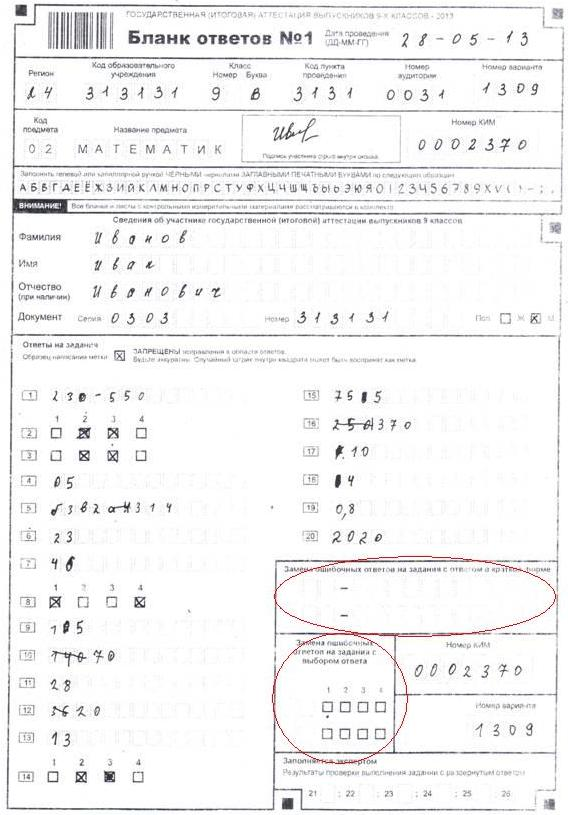 ГОСУДАРСТВЕННАЯ (ИТОГОВАЯ) АТТЕСТАЦИЯ ВЫПУСКНИКОВ 9-Х КЛАССОВ - 2013
Бланк ответов №1
Дата проведения (ДД-ММ-ГГ)
28-05-13
Регион
Код образовательного учреждения
Класс
Номер Буква
Код пункта проведения
Номер аудитории
Номер варианта
24 313131 9 В 3131 0031 1309
Код предмета
Название предмета
Номер КИМ
02 МАТЕМАТИК
0002370
Подпись участника строго внутри окошка
Заполнять гелевой или капиллярной ручкой ЧЕРНЫМИ чернилами ЗАГЛАВНЫМИ ПЕЧАТНЫМИ БУКВАМИ по следующим образцам
АБВГДЕЁЖЗИЙКЛМНОПРСТУФХЦЧШЩЪЫЬЭЮЯ0123456789XV()-;,
ВНИМАНИЕ! Все бланки и листы с контрольными измерительными материалами рассматриваются в комплекте
Сведения об участнике государственной (итоговой) аттестации выпускников 9 классов
Фамилия Иванов
Имя Иван
Отчество (при наличии) Иванович
Документ Серия 0303 Номер 313131 Пол Ж М
Ответы на задания
Образец написания метки
ЗАПРЕЩЕНЫ исправления в области ответов.
Будьте аккуратны. Случайный штрих внутри квадрата может быть воспринят как метка.
1 230-550
1 2 3 4
2
3
4 05
5
6 23
7 46
1 2 3 4
8
9
10 70
11 28
12 20
13 13
1 2 3 4
14
15
16 370
17 10
18 4
19 0,8
20 2020
Замена ошибочных ответов на задания с ответом в краткой форме
-
-
Замена ошибочных ответов на задания с выбором ответа
1 2 3 4
Номер КИМ
0002370
Номер варианта
1309
Заполняется экспертом
Результаты проверки выполнения заданий с развернутым ответом
21 22 23 24 25 26